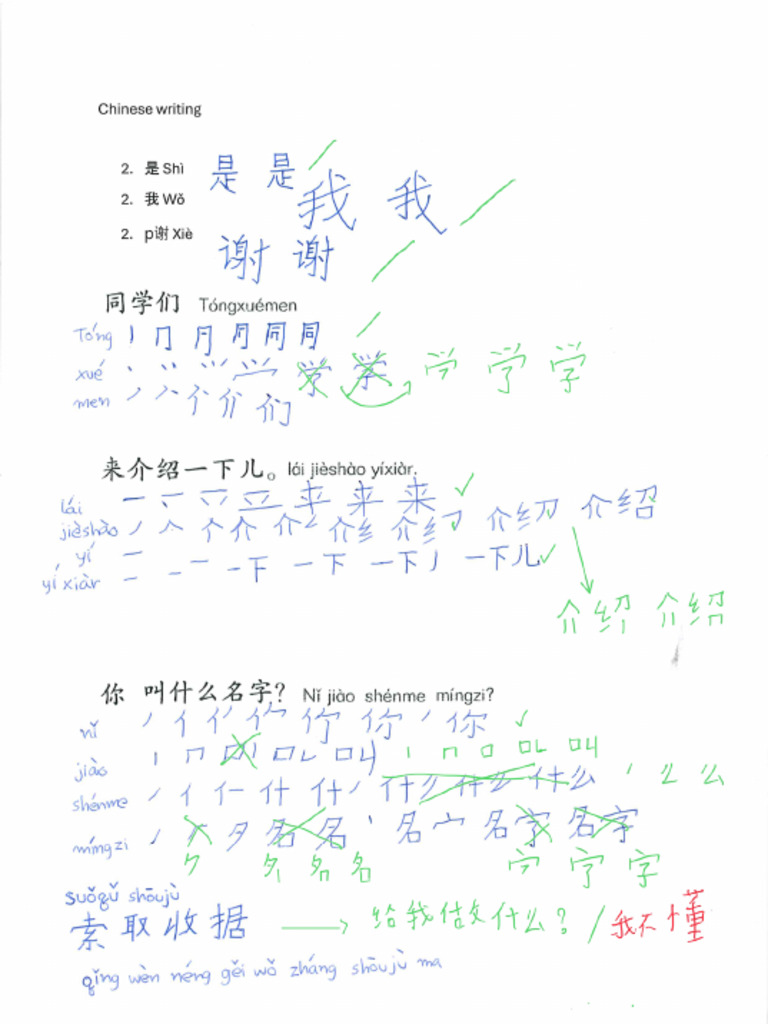 Chinese writing
2. 是 Shì 是 是
2. 我 Wǒ 我 我
2. p谢 Xiè 谢 谢
同学们 Tóngxuémen
Tóng 丨 冂 同 同
xué 学 学 学
men 们
来介绍一下儿。lái jièshào yíxiàr.
lái 一 来 来
jièshào 介 介绍 介绍
yí 一
yí xiàr 一 一下 一下 一下儿
介绍 介绍
你 叫什么名字? Nǐ jiào shénme míngzi?
nǐ 丿 亻 你 你
jiào 丨 叫 丨 口 叫
shénme 丿 亻 什 什么 什么 么
míngzi 夕 名 名 名字 名字
夕 名 名 宀 字
suǒqǔ shōujù
索取收据 给我 什么? / 我不懂
qǐng wèn néng gěi wǒ zháng shōujù ma